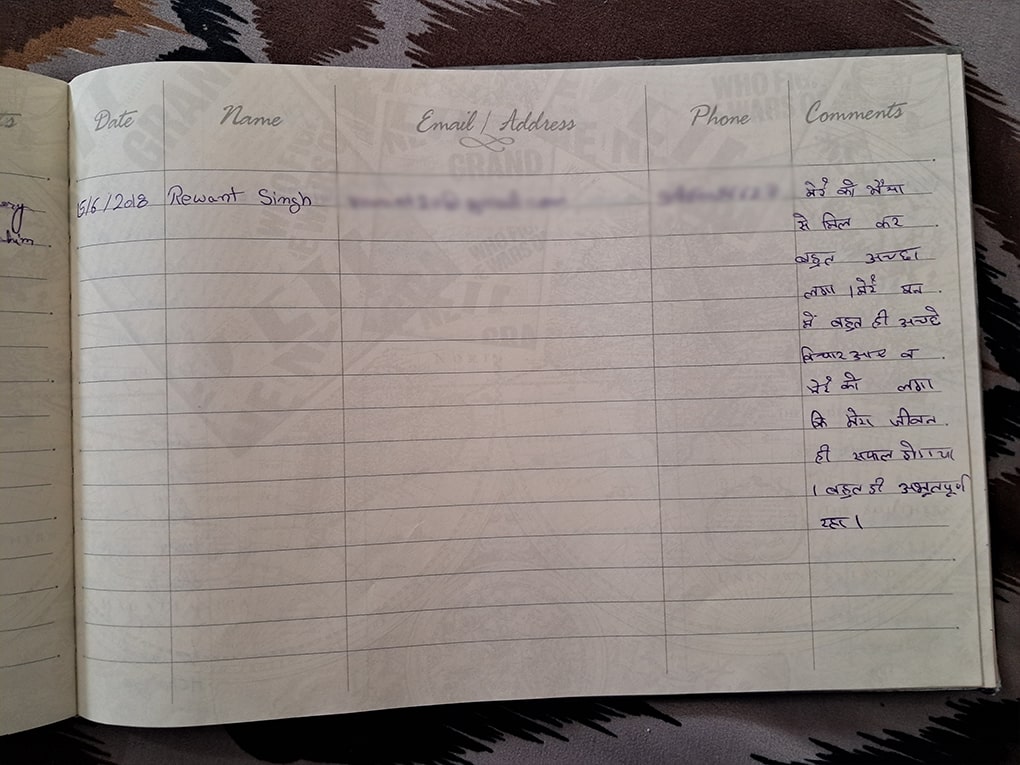 Date Name Email / Address Phone Comments
5/6/2018 Rewant Singh मेरे को भैया
से मिल कर
बहुत अच्छा
लगा । मेरे मन
में बहुत ही अच्छे
विचार आए व
मेरे को लगा
कि मेरा जीवन
ही सफल हो गया
। बहुत ही अभूतपूर्ण
रहा ।